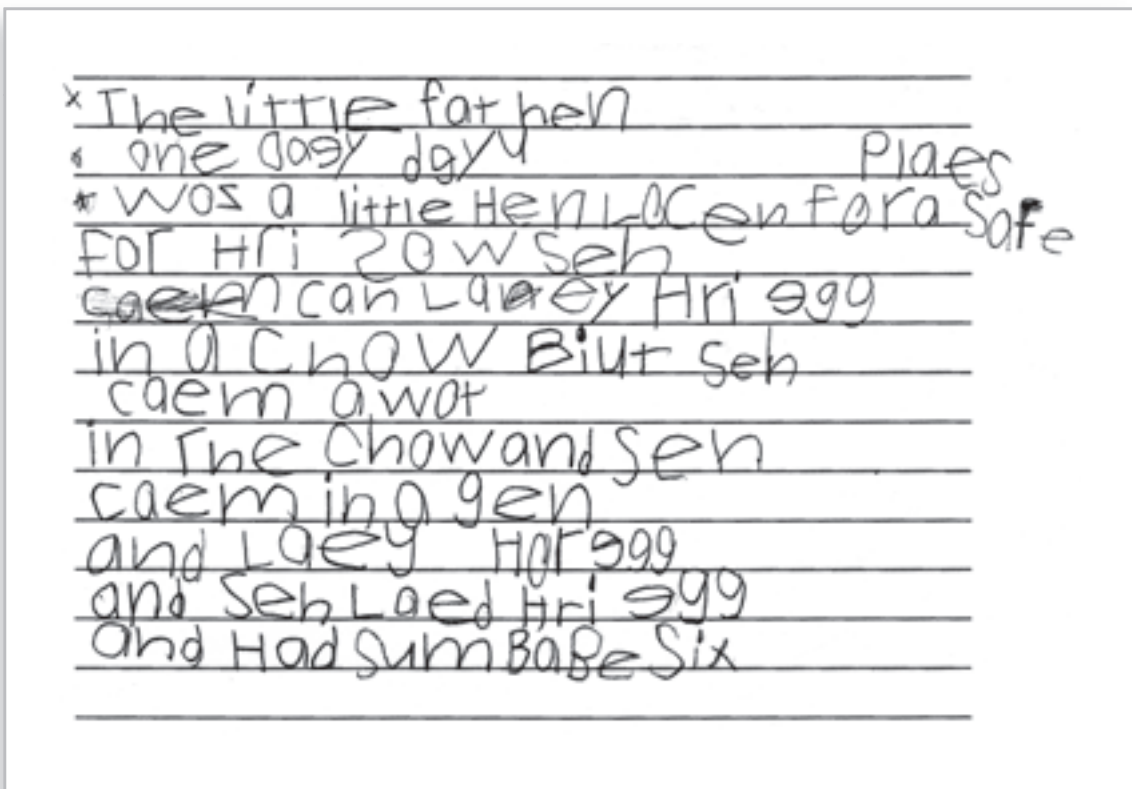 The little fat hen
one dagy dayy Plaes
Was a little Hen LOCen Fora Safe
For Hri 20W Seh
can Laey Hri egg
in a ChOW Biut Seh
caem awot
in The Chowand Seh
caem in a gen
and Laey Har egg
and Seh Laed Hri egg
and Had Sum BaBe Six